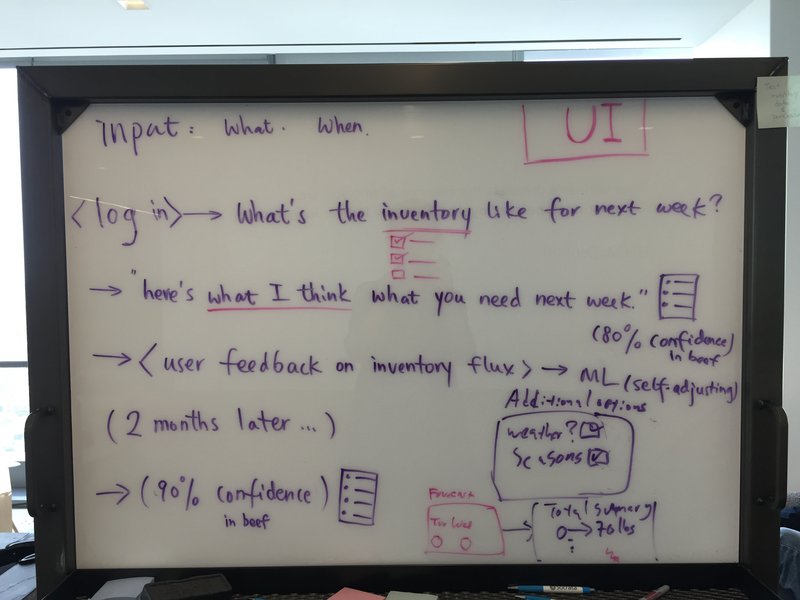 input: What. When.
UI
<log in> → What's the inventory like for next week?
→ "here's what I think what you need next week."
(80% confidence)
in beef
→ <user feedback on inventory flux> → ML (self-adjusting)
Additional options
(2 months later...)
weather?
Seasons
→ (90% confidence)
in beef
Forecast
Tue Wed
Total Summary
0 → 70 lbs
Test
monthly
data